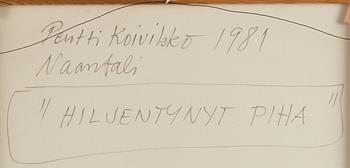 Pentti Koivikko 1981
Naantali
"HILJENTYNYT PIHA"